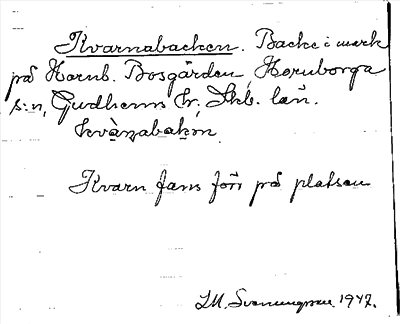 Kvarnabacken. Backe i mark
på Hornb. Bosgården, Hornborga
s:n, Gudhems hr. Skb. län.
kvàɳabakən
Kvarn fans förr på platsen
1947.